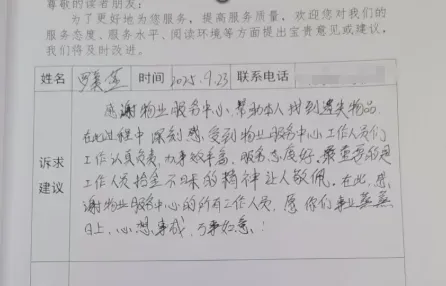 尊敬的读者朋友：
为了更好地为您服务，提高服务质量，欢迎您对我们的
服务态度、服务水平、阅读环境等方面提出宝贵意见或建议，
我们将及时改进。
姓名 时间 2025.9.23 联系电话
诉求
建议
感谢物业服务中心，帮助本人找到遗失物品，
在此过程中深刻感受到物业服务中心工作人员们
工作认真负责，办事效率高、服务态度好，最重要的是
工作人员拾金不昧的精神让人敬佩。在此，感
谢物业服务中心的所有工作人员，愿你们事业蒸蒸
日上，心想事成，万事如意！